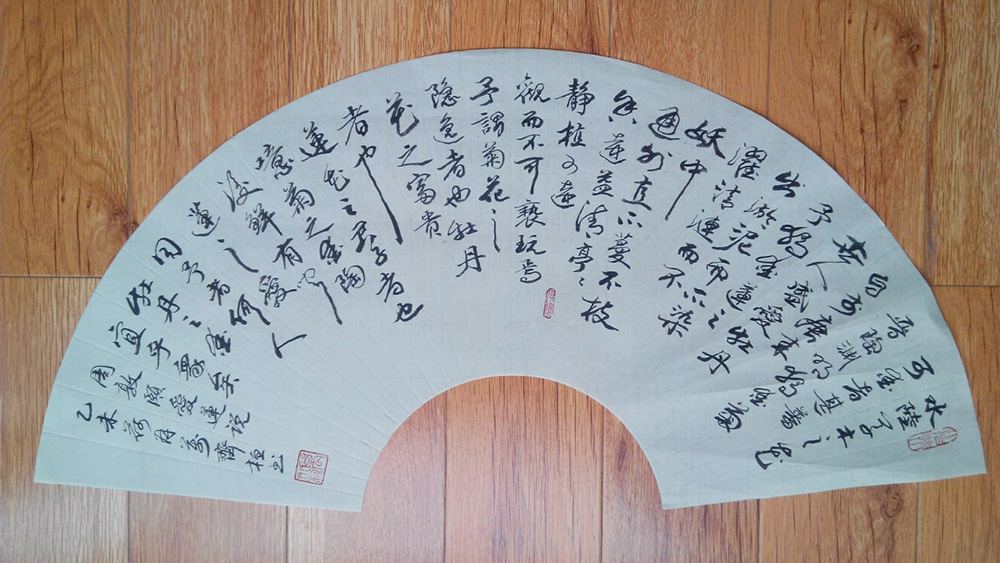 水陸草木之花
可愛者甚蕃
晉陶淵明獨愛菊
自李唐來
世人盛愛牡丹
予獨愛蓮之
出淤泥而不染
濯清漣而不
妖中
通外直不蔓不枝
香遠益清亭々
靜植可遠
觀而不可褻玩焉
予謂菊花之
隱逸者也牡丹
花之富貴
者也
蓮花之君子者也
噫菊之愛陶
後鮮有聞
蓮之愛
同予者何人
牡丹之愛
宜乎衆矣
周敦頤愛蓮説
乙未荷月萬齊桓書